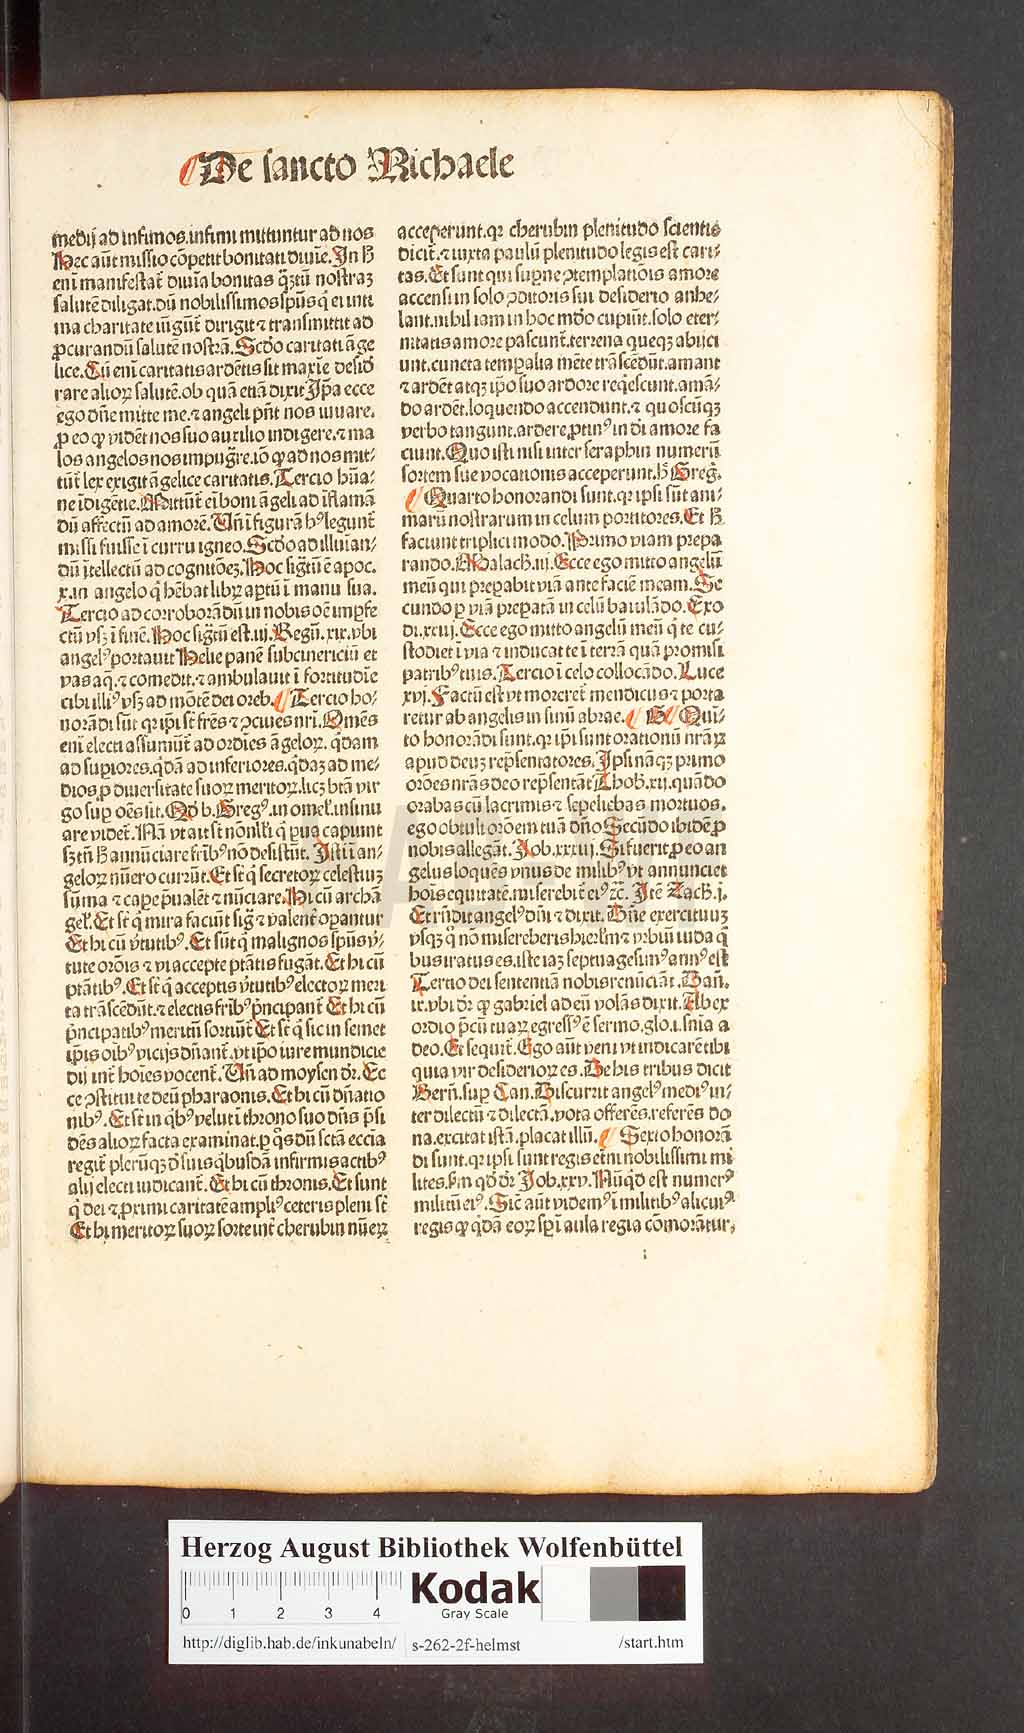 De sancto Michaele
medij ad infimos.infimi mittuntur ad nos
Hec aūt missio cōpetit bonitati diuīe.In ħ
enī manifestat̄ diuīa bonitas q̄ȝtū nostraȝ
salutē diligat.dū nobilissimos sp̄us q̄ ei inti
ma charitate iūgūt̄ dirigit ⁊ transmittit ad
ꝓcurandū salutē nostrā.Scd̄o caritati āge
lice.Cū enī caritatis ardētis sit maxīe desid̄
rare alioꝝ salutē.ob quā etiā dixit Ip̄a ecce
ego dn̄e mitte me.⁊ angeli pn̄t nos iuuare.
ꝓ eo ꝙ vidēt nos suo auxilio indigere.⁊ ma
los angelos nos impug̅re.iō ꝙ ad nos mit-
tūt̄ lex exigit āgelice caritatis.Tercio hūa-
ne īdigētie.Mittūt̄ ei boni āgeli ad īflamā
dū affectū ad amorē.Vn̄ ī figurā hꝰ legunt̄
missi fuisse ī curru igneo.Scd̄o ad illuīan-
dū ītellectū ad cognitōeȝ.Hoc sig̅tū ē apoc.
x.in angelo q̄ hēbat libꝝ aꝑtū ī manu sua.
Tercio ad corroborādū in nobis oē imꝑfe
ctū vsꝫ ī finē.Hoc sig̅tū est.iij.Regū.xix.vbi
angelꝰ portauit Helie panē subcinericiū et
vas aq̄.⁊ comedit.⁊ ambulauit ī fortitudīe
cibi illiꝰ vsꝫ ad mōtē dei oreb.Tercio ho-
norādi sūt qꝛ ip̄i st̄ fr̄es ⁊ ꝯciues nr̄i.Omēs
enī electi assumūt̄ ad ordīes āgeloꝝ.q̄dam
ad suꝑiores.q̄dā ad inferiores.q̄daȝ ad me-
dios.ꝑ diuersitate suoꝝ meritoꝝ.licȝ btā vir
go suꝑ oēs sit.Qd̄ b.Gregꝰ.in omeł.insinu
are videt̄.Nā vt ait st̄ nōnłłi q̄ ꝑua capiunt
sꝫ tn̄ ħ annūciare fr̄ibꝰ nō desistūt.Isti ī an-
geloꝝ nūero curūt.Et st̄ q̄ secretoꝝ celestiuȝ
sūma ⁊ caꝑe p̄ualēt ⁊ nūciare.Hi cū archā
geł.Et st̄ q̄ mira faciūt sig̅ ⁊ valent̄ oꝑantur
Et hi cū v̄tutibꝰ.Et sūt q̄ malignos sp̄us v̄-
tute orōis ⁊ vi accepte ptātis fugāt.Et hi cū
ptātibꝰ.Et st̄ q̄ acceptis v̄tutibꝰ electoꝝ meri
ta trāscēdūt.⁊ electis fr̄ibꝰ p̄ncipant̄ Et hi cū
p̄ncipatibꝰ meritū sortiūt̄ Et st̄ q̄ sic in semet
ip̄is oībꝰ vicijs dn̄ant̄.vt ip̄o iure mundicie
dij int̄ hoīes vocent̄.Vn̄ ad moysen dr̄.Ec
ce ꝯstitui te deū pharaonis.Et hi cū dn̄atio
nibꝰ.Et st̄ in q̄bꝰ velut ī throno suo dn̄s p̄si
dēs alioꝝ facta examinat.ꝑ q̄s dū sctā eccīa
regit̄ plerūqꝫ d̄ suis q̄busdā infirmis actibꝰ
alij electi iudicant̄.Et hi cū thronis.Et sunt
q̄ dei ⁊ ꝓximi caritatē ampliꝰ ceteris pleni st̄
Et hi meritoꝝ suoꝝ sorte int̄ cherubin nūeꝝ
acceperunt.qꝛ cherubin plenitudo scientie
dicit̄.⁊ iuxta paulū plenitudo legis est cari-
tas.Et sunt qui suꝑne ꝯtemplatiōis amore
accensi in solo ꝯditoris sui desiderio anhe-
lant.nihil iam in hoc mūdo cupiūt.solo eter-
nitatis amore pascunt̄.terrena queqꝫ abijci
unt.cuncta temꝑalia mēte trāscēdūt.amant
⁊ ardēt atqꝫ ip̄o suo ardore reqꝫescunt.amā-
do ardēt.loquendo accendunt.⁊ quoscūqꝫ
verbo tangunt.ardere ꝓtinꝰ in dī amore fa
ciunt.Quo isti nisi inter seraphin numerū
sortem sue vocationis acceperunt.ħ Greg̅.
Quarto honorandi sunt.qꝛ ipsi sūt ani-
marū nostrarum in celum portitores.Et ħ
faciunt triplici modo.Primo viam prepa
rando.Malach̅.iij.Ecce ego mitto angelū
meū qui preꝑabit viā ante faciē meam.Se
cundo ꝑ viā preꝑatā in celū baiulādo.Exo
di.xxiij.Ecce ego mitto angelū meū q̄ te cu-
stodiet ī via ⁊ inducat te ī terrā quā promisi
patribꝰ tuis.Tercio ī celo collocādo.Luce
xvj.Factū est vt moreret̄ mendicus ⁊ porta
retur ab angelis in sinū abrae.Quī-
to honorādi sunt.qꝛ ip̄i sunt orationū nr̄aꝝ
apud deuȝ repn̄tatores.Ipsi nāqꝫ primo
orōes nr̄as deo repn̄tāt Thob̅.xij.quādo
orabas cū lacrimis ⁊ sepeliebas mortuos.
ego obtuli orōem tuā dn̄o Secūdo ibidē ꝓ
nobis allegāt.Job.xxxiij.Si fuerit ꝓ eo an
gelus loquēs vnus de milibꝰ vt annunciet
hoīs equitatē.miserebit̄ eiꝰ ⁊c.Itē Zach̅.j.
Et rn̄dit angelꝰ dn̄i ⁊ dixit.Dn̄e exercituuȝ
vsqꝫ q̄ nō misereberis hierłm ⁊ vrbiū iuda q̄
bus iratus es.iste iaȝ septuagesimꝰ annꝰ est
Tercio dei sententiā nobis renūciāt.Dañ.
ix.vbi dr̄ ꝙ gabriel ad eū volās dixit.Ab ex
ordio p̄cū tuaꝝ egressꝰ ē sermo.glo.i.sn̄ia a
deo.Et sequit̄.Ego aūt veni vt indicarē tibi
quia vir desideriorꝝ es.De his tribus dicit
Berñ.suꝑ Can.Discurrit angelꝰ mediꝰ in-
ter dilectū ⁊ dilectā.vota offerēs.referēs do
na.excitat istā.placat illū.Sexto honorā
di sunt.qꝛ ipsi sunt regis et̄ni nobilissimi mi
lites.Fm̄ qd̄ dr̄ Job.xxv.Nūq̄d est numerꝰ
militū eiꝰ.Sic̄ aūt videmꝰ ī militibꝰ alicuiꝰ
regis ꝙ q̄dā eoꝝ sp̄ ī aula regia cōmorātur,
i
Herzog August Bibliothek Wolfenbüttel
0 1 2 3 4
Kodak
Gray Scale
http://diglib.hab.de/inkunabeln/ s-262-2f-helmst /start.htm